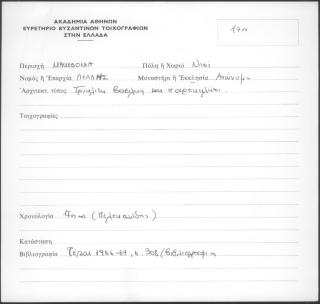 ΑΚΑΔΗΜΙΑ ΑΘΗΝΩΝ
ΕΥΡΕΤΗΡΙΟ ΒΥΖΑΝΤΙΝΩΝ ΤΟΙΧΟΓΡΑΦΙΩΝ
ΣΤΗΝ ΕΛΛΑΔΑ
Περιοχή ΜΑΚΕΔΟΝΙΑ Πόλη ή Χωριό Νησί
Νομός ή Ἐπαρχία ΠΕΛΛΗΣ Μοναστήρι ἤ Ἐκκλησία
Ἀρχιτεκτ. τύπος Τρίκλιτη βασιλική και παρεκκλήσι.
Τοιχογραφίες
Χρονολογία (Πελεκανίδης)
Κατάσταση
Βιβλιογραφία 1964 σ. 308 (βιβλιογραφία